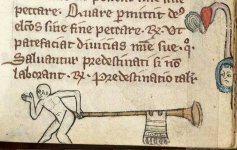 peccare. Quare permittit de⁹
electos sine fine peccare. R. Vt
patefaciat diuitias mie sue. q̇
Saluantur predestinati si nō
laborant. R. Predestinatio tali